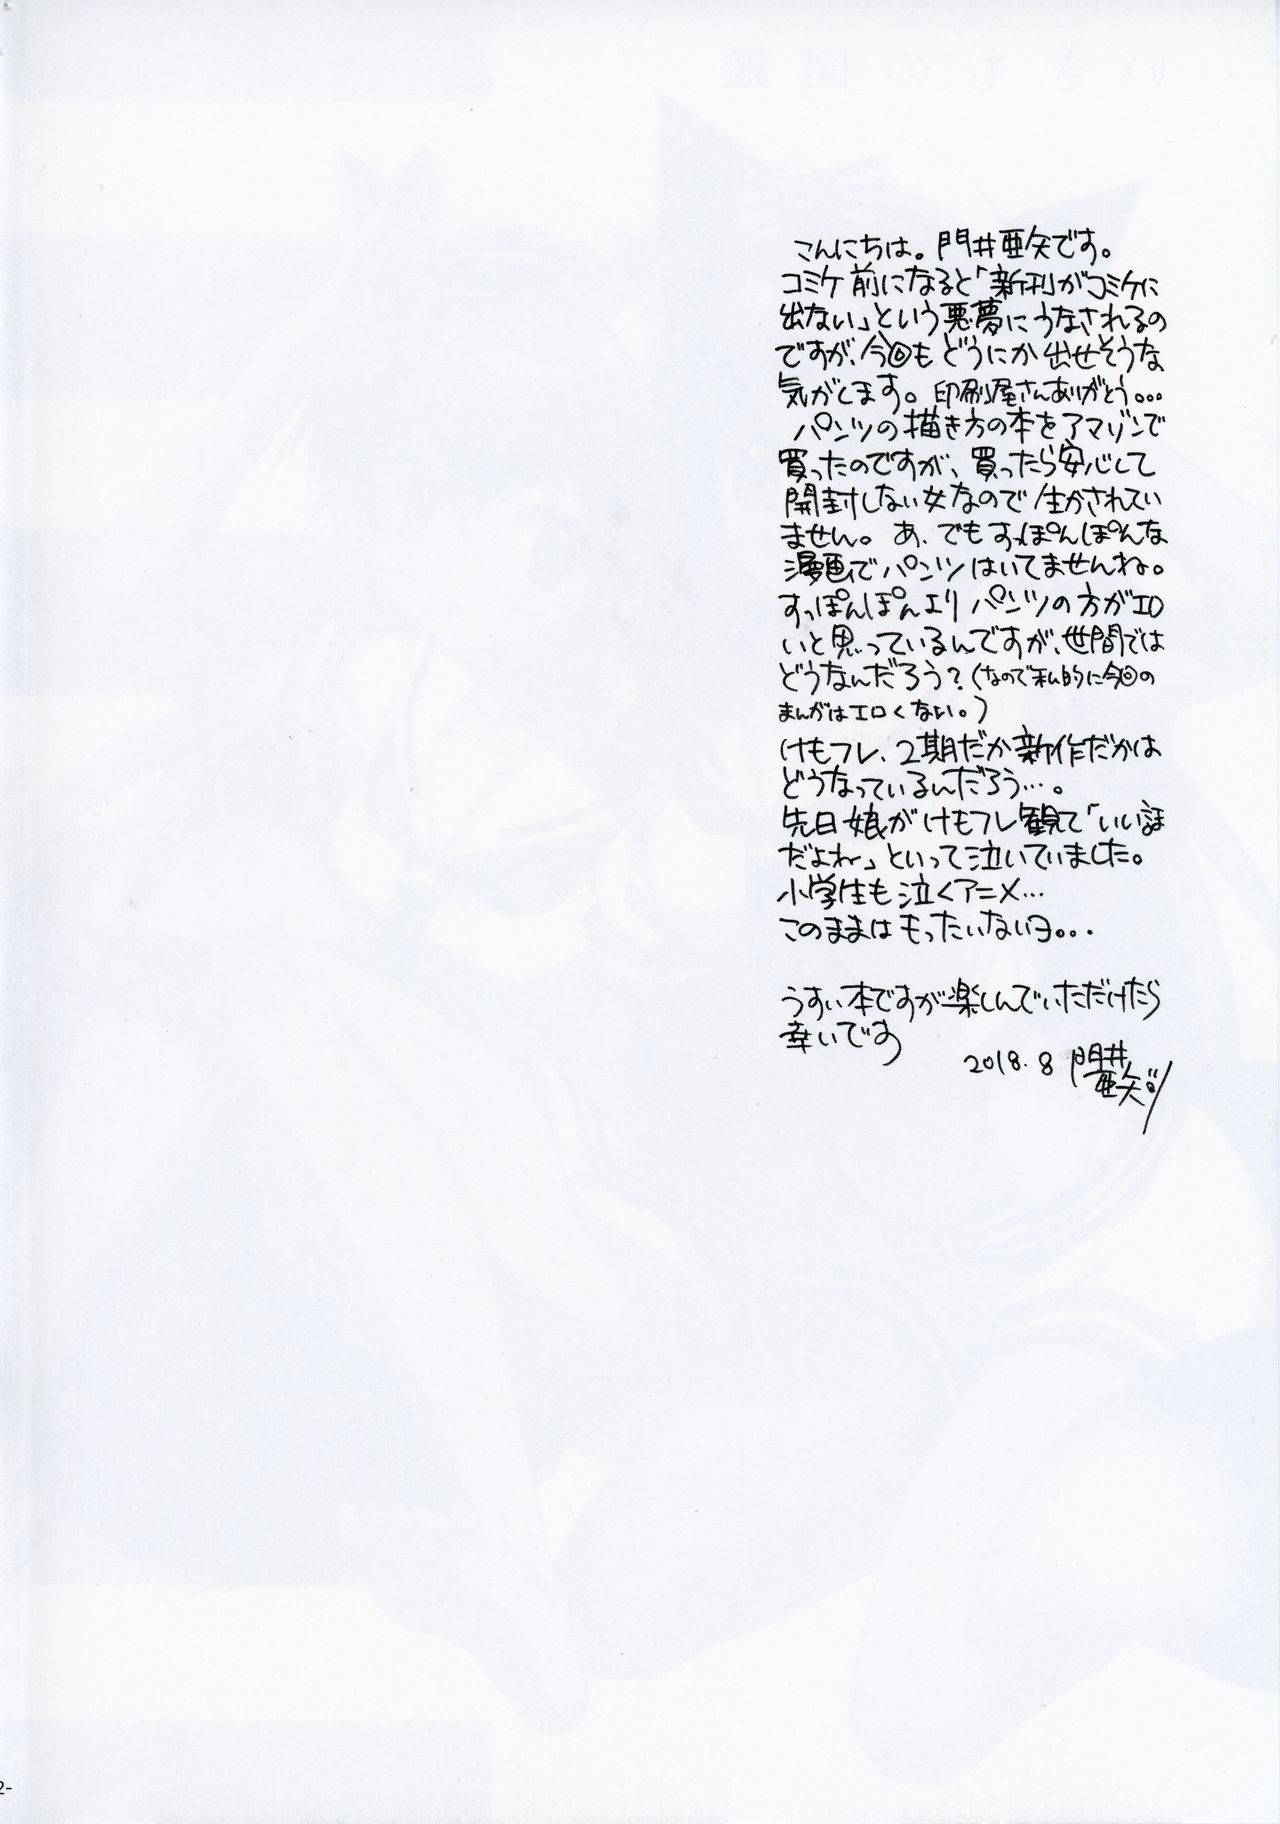 こんにちは。門井亜矢です。
コミケ前になると「新刊がコミケに
出ない」という悪夢にうなされるの
ですが、今回もどうにか出せそうな
気がします。印刷屋さんありがとう...
パンツの描き方の本をアマゾンで
買ったのですが、買ったら安心して
開封しない女なので生かされてい
ません。あ、でもすっぽんぽんな
漫画でパンツはいてませんね。
すっぽんぽんよりパンツの方がエロ
いと思っているんですが、世間では
どうなんだろう?(なので私的に今回の
まんがはエロくない。)
けもフレ、2期だか新作だかは
どうなっているんだろう…。
先日娘がけもフレ観て「いい話
だよね」といって泣いていました。
小学生も泣くアニメ…
このままはもったいないヨ...
うすい本ですが楽しんでいただけたら
幸いです
2018.8 門井亜矢
2-
いきもの図鑑